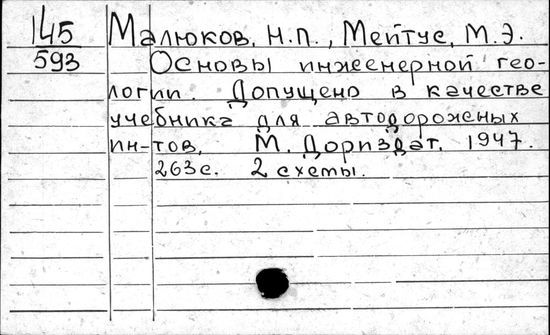 145 Малюков, Н.П., Мейтус, М.Э.
593 Основы инженерной гео-
логии. Допущено в качестве
учебника для автодорожных
ин-тов. М. Дориздат. 1947.
263с. 2 схемы.